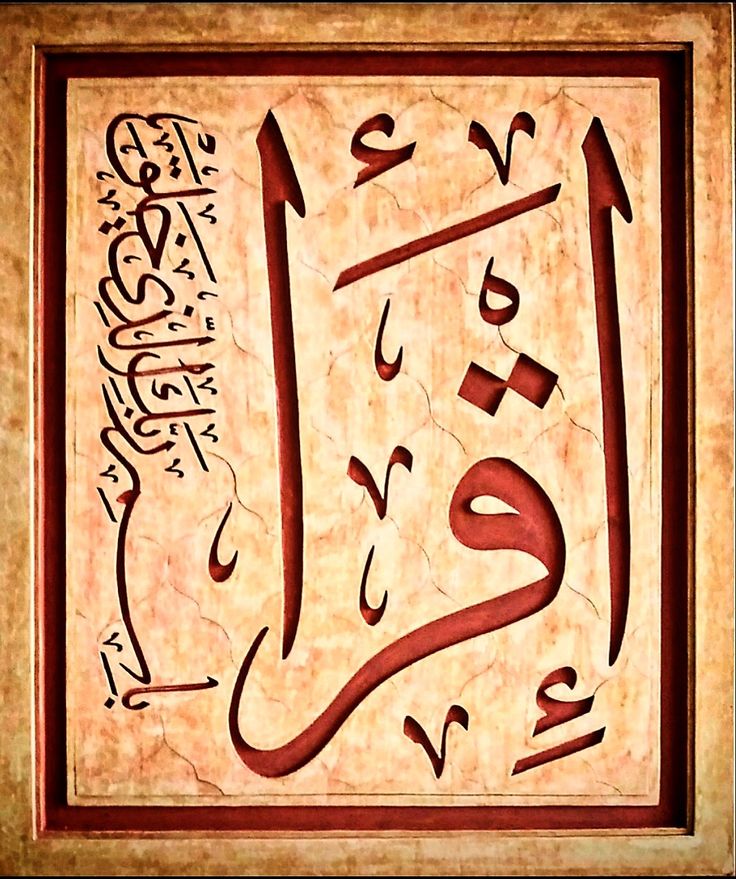 إِقْرَأ
بِاسْمِ رَبِّكَ الَّذِي خَلَقَ